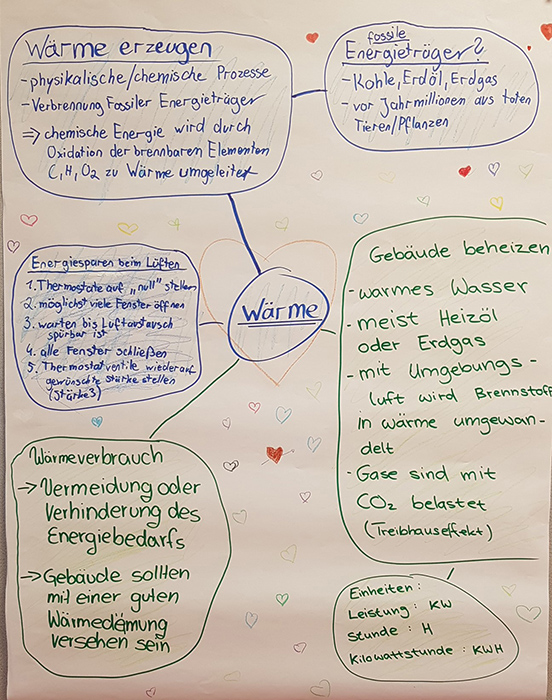 Wärme erzeugen
- physikalische/chemische Prozesse
- Verbrennung Fossiler Energieträger
⇒ chemische Energie wird durch
Oxidation der brennbaren Elementen
C, H, O2 zu Wärme umgeleitet
fossile
Energieträger?
- Kohle, Erdöl, Erdgas
- vor Jahrmillionen aus toten
Tieren/Pflanzen
Energiesparen beim Lüften
1. Thermostate auf „null" stellen
2. möglichst viele Fenster öffnen
3. warten bis Luftaustausch
spürbar ist
4. alle Fenster schließen
5. Thermostatventile wieder auf
gewünschte stärke stellen
(Stärke 3)
Wärme
Gebäude beheizen
- warmes Wasser
- meist Heizöl
oder Erdgas
- mit Umgebungs-
luft wird Brennstoff
in wärme umgewan-
delt
- Gase sind mit
CO2 belastet
(Treibhauseffekt)
Wärmeverbrauch
→ Vermeidung oder
Verhinderung des
Energiebedarfs
→ Gebäude sollten
mit einer guten
Wärmedämung
versehen sein
Einheiten:
Leistung: KW
Stunde: H
Kilowattstunde: KWH